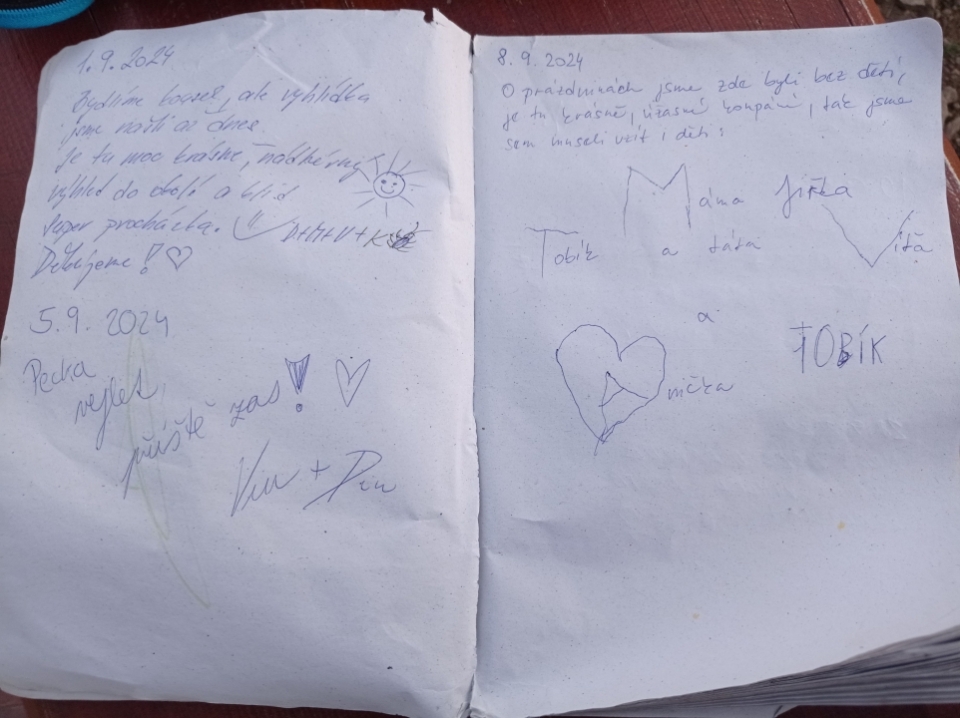 1.9.2024
Bydlíme kousek, ale vyhlídka
jsme našli až dnes.
Je tu moc krásně, nádherný
výhled do okolí a
super procházka.
Děkujeme! ♡
5.9. 2024
Pecka
vejlet
příště zas! ♡
8.9.2024
O prázdninách jsme zde byli bez dětí,
je tu krásně, úžasné koupání, tak jsme
sem museli vzít i děti:
Máma Jiřka
Tobík a táta Víťa
a
Anička TOBÍK